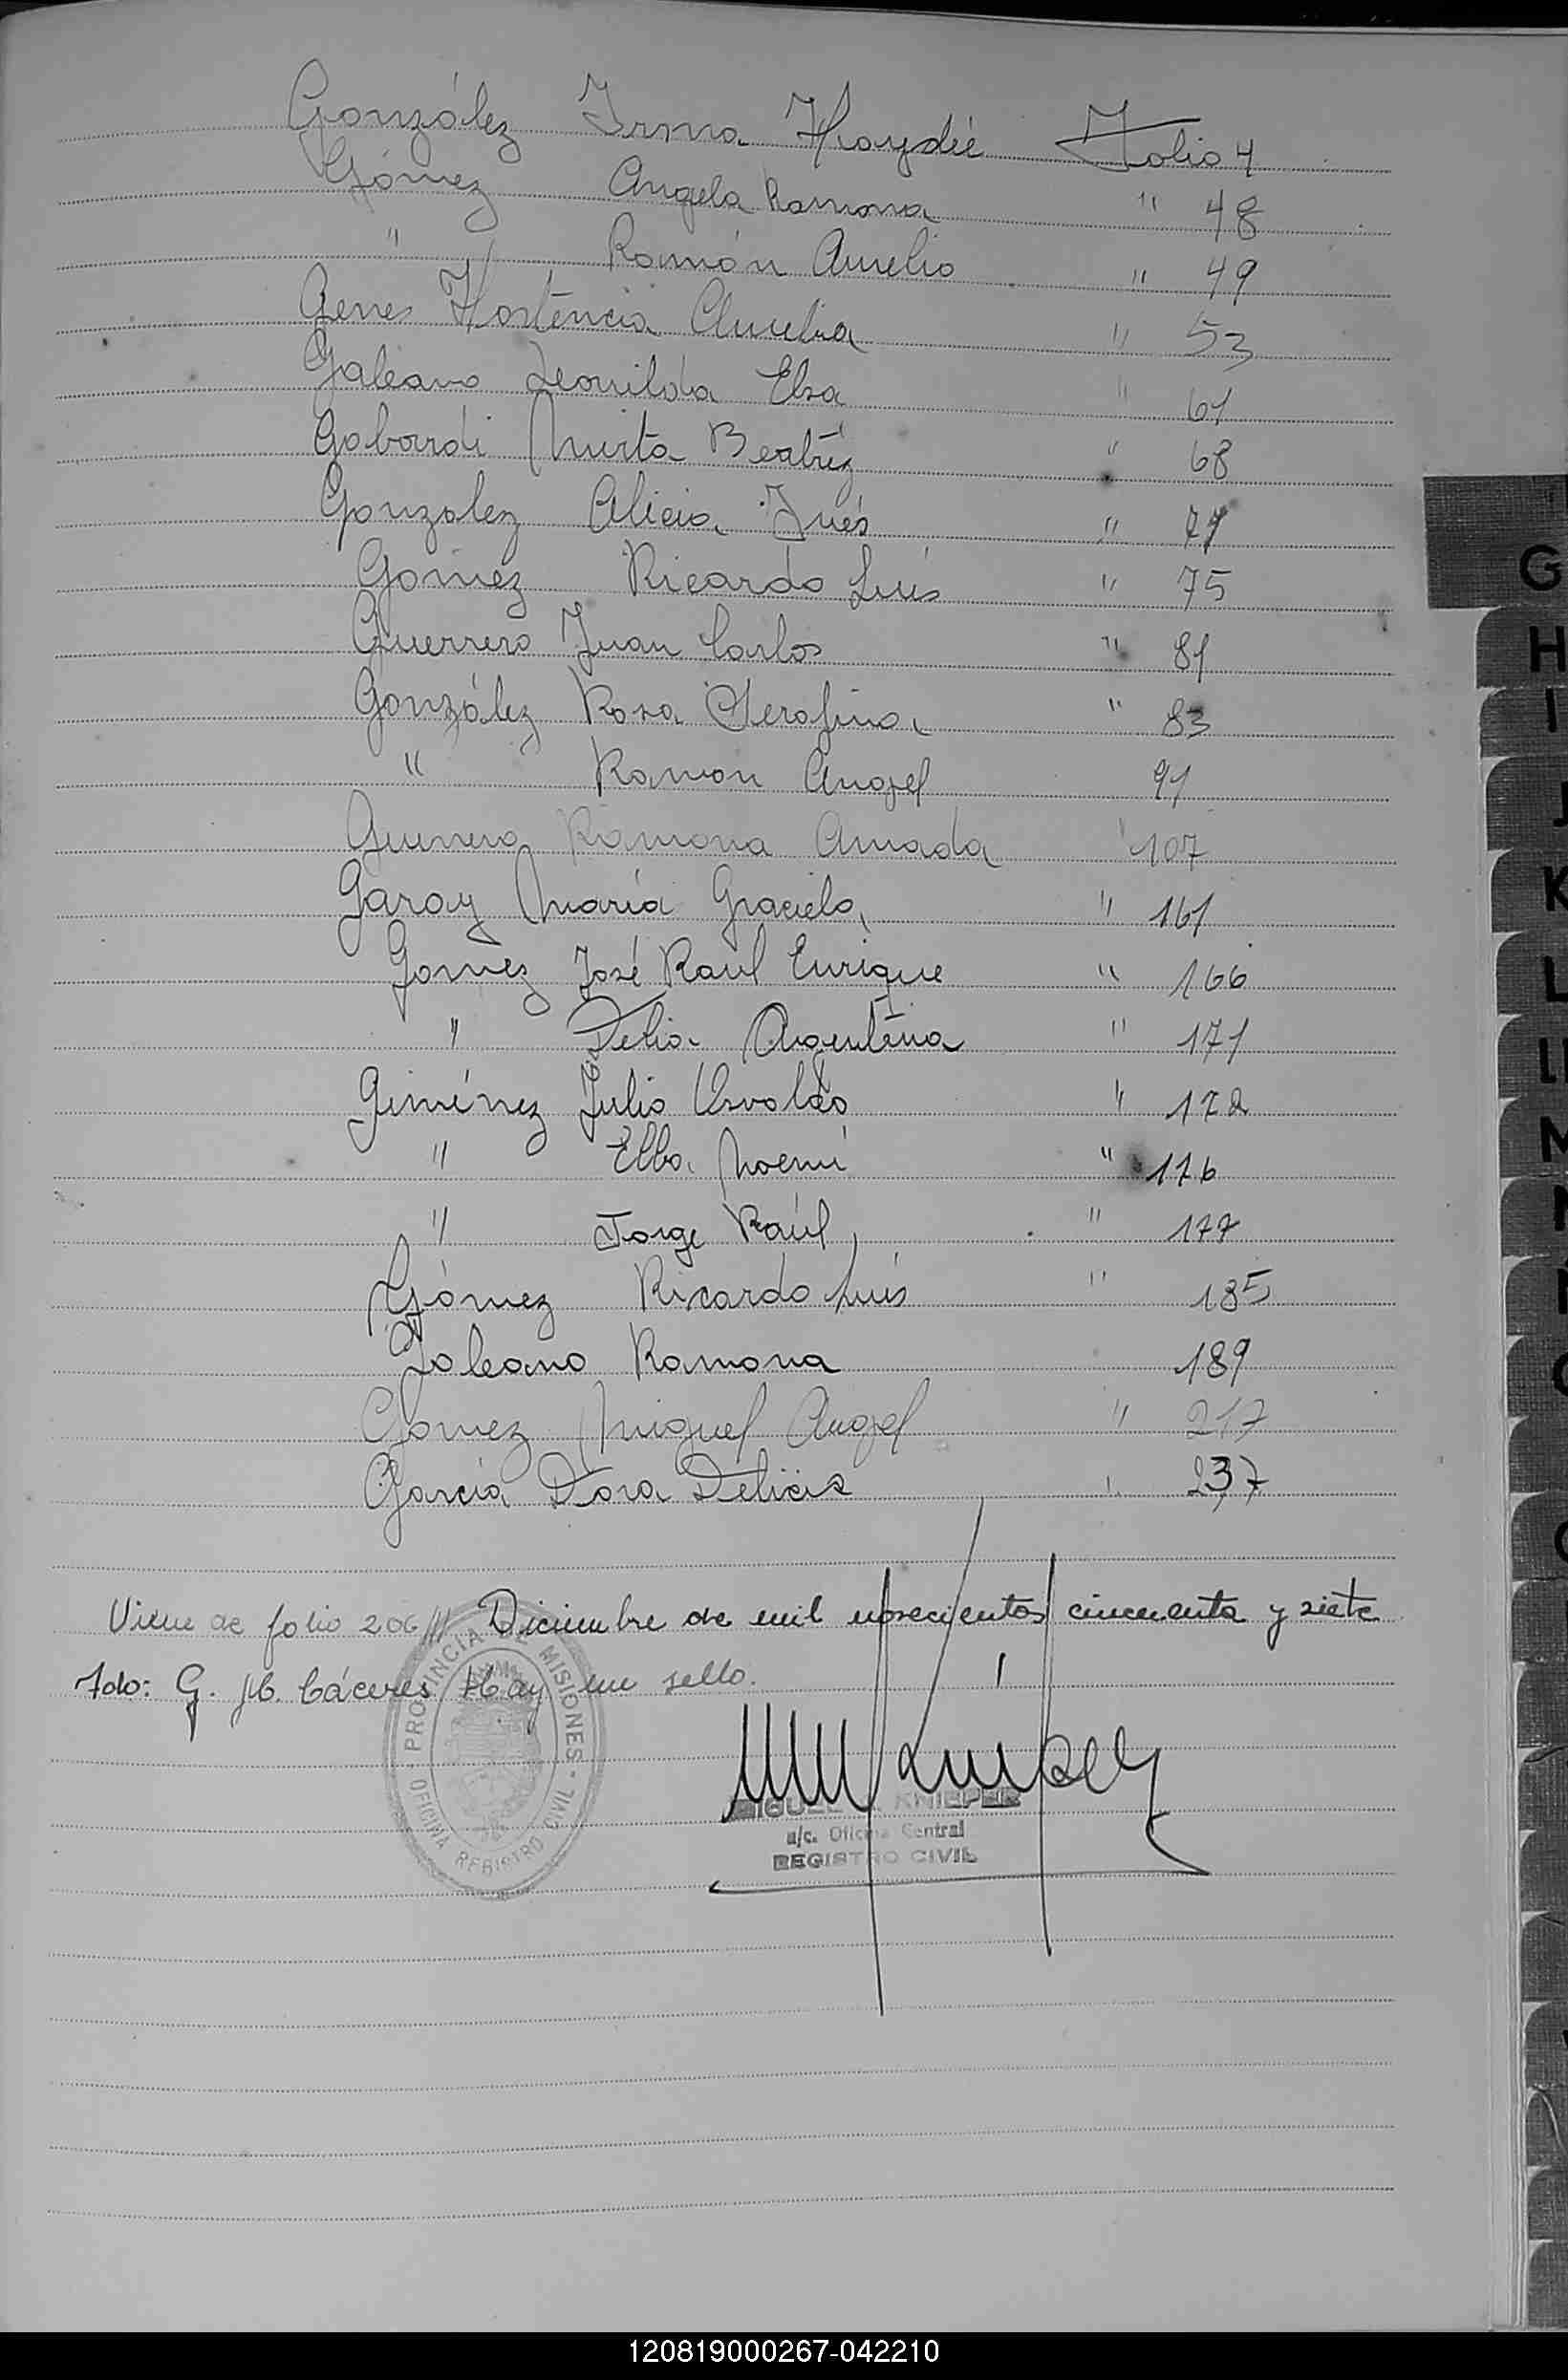 González Irma Haydée Folio 4
Gómez Angela Ramona " 48
" Ramón Aurelio " 49
Genes Hortencia Amelia " 53
Galeano Leonilda Elsa " 61
Gobardi Mirta Beatríz " 68
Gonzalez Alicia Inés " 71
Gómez Ricardo Luis " 75
Guerrero Juan Carlos " 81
González Rosa Serafina " 83
" Ramon Angel 91
Guerrero Ramona Amada " 107
Garay María Graciela " 161
Gomez José Raul Enrique " 166
" Delia Argentina " 171
Giménez Julio Osvaldo " 172
" Elba Noemí " 176
" Jorge Raúl " 177
Gómez Ricardo Luis " 185
Galeano Ramona 189
Gomez Miguel Angel " 217
García Dora Delicia " 237
Viene de folio 206 /// Diciembre de mil novecientos cincuenta y siete
Fdo: G. M. Cáceres Hay un sello.
PROVINCIA DE MISIONES - OFICINA REGISTRO CIVIL -
MIGUEL KNIEPER
a/c. Oficina Central
REGISTRO CIVIL
G
H
I
J
K
L
Ll
M
N
Ñ
O
120819000267-042210